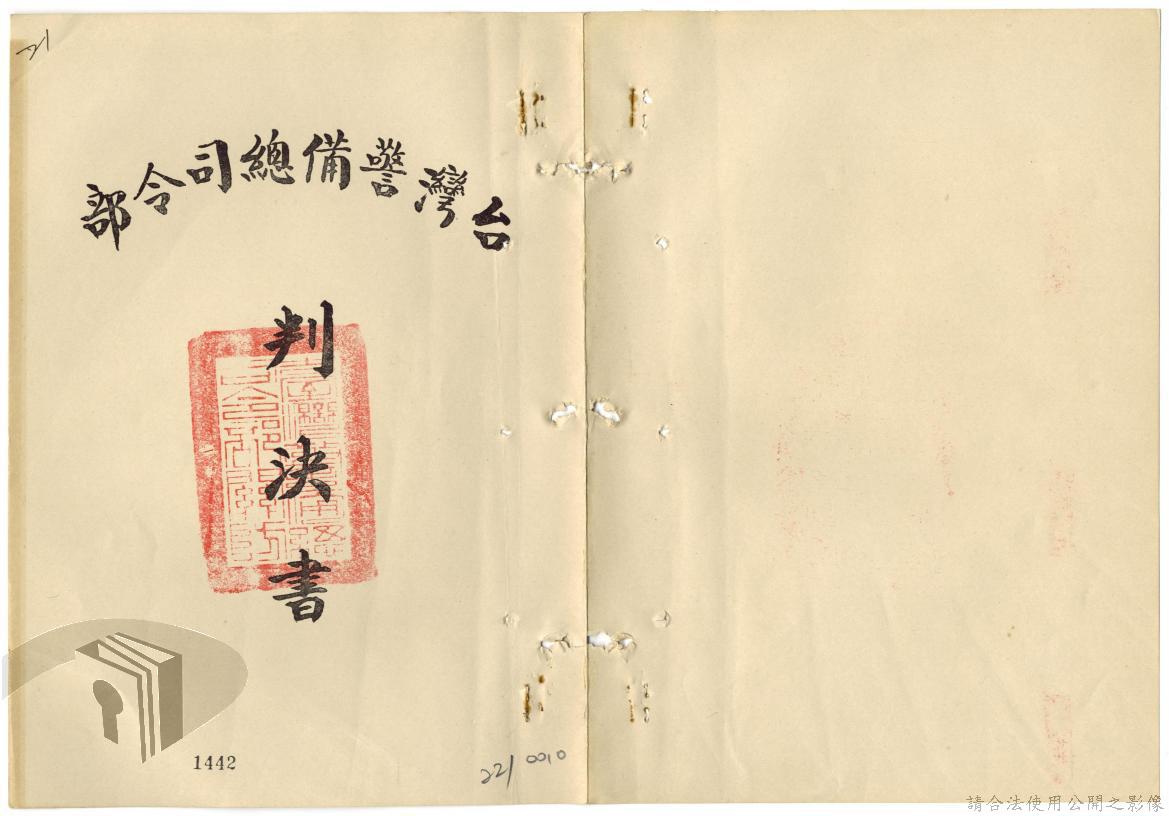 21
台灣警備總司令部
判決書
1442
221 0010
請合法使用公開之影像